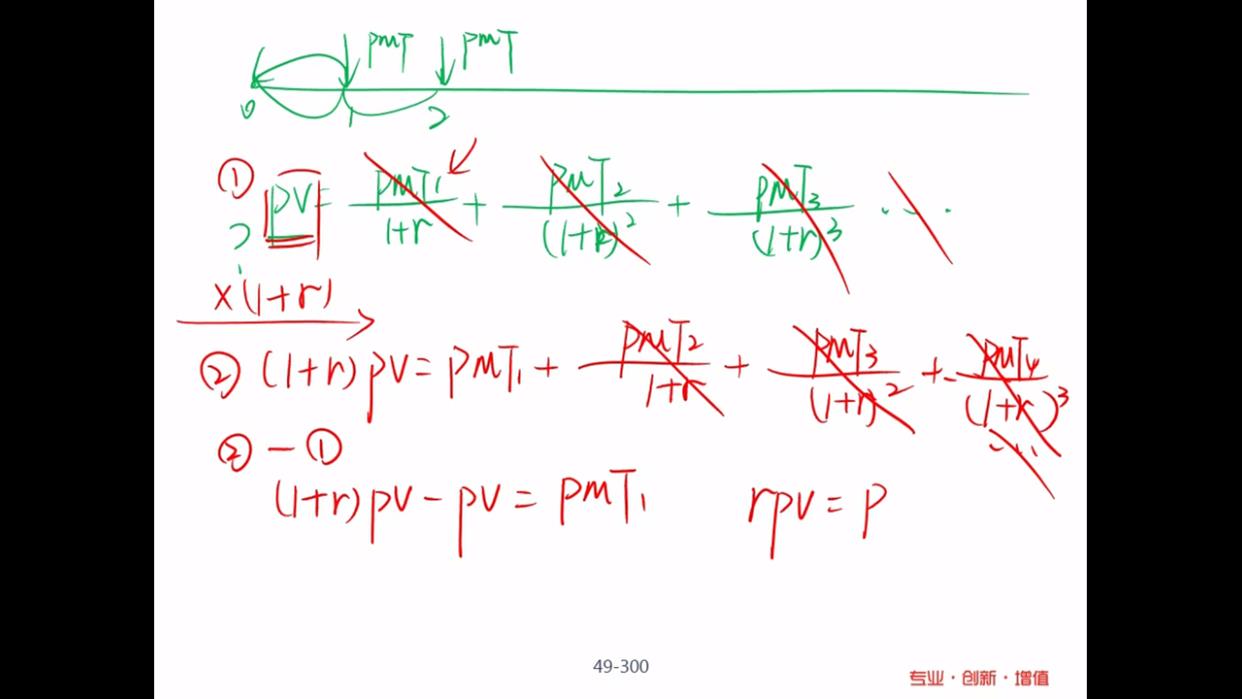 PMT PMT
0 1 2
① PV = PMT₁/(1+r) + PMT₂/(1+r)² + PMT₃/(1+r)³ ...
×(1+r)
② (1+r)PV = PMT₁ + PMT₂/(1+r) + PMT₃/(1+r)² + PMT₄/(1+r)³ ...
② - ①
(1+r)PV - PV = PMT₁ rPV = P
49-300
专业·创新·增值